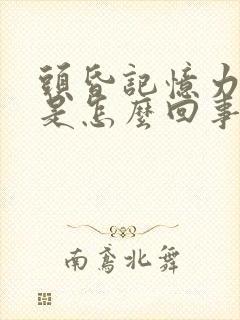 頭昏記憶力
是怎麼回事
南鳶北舞